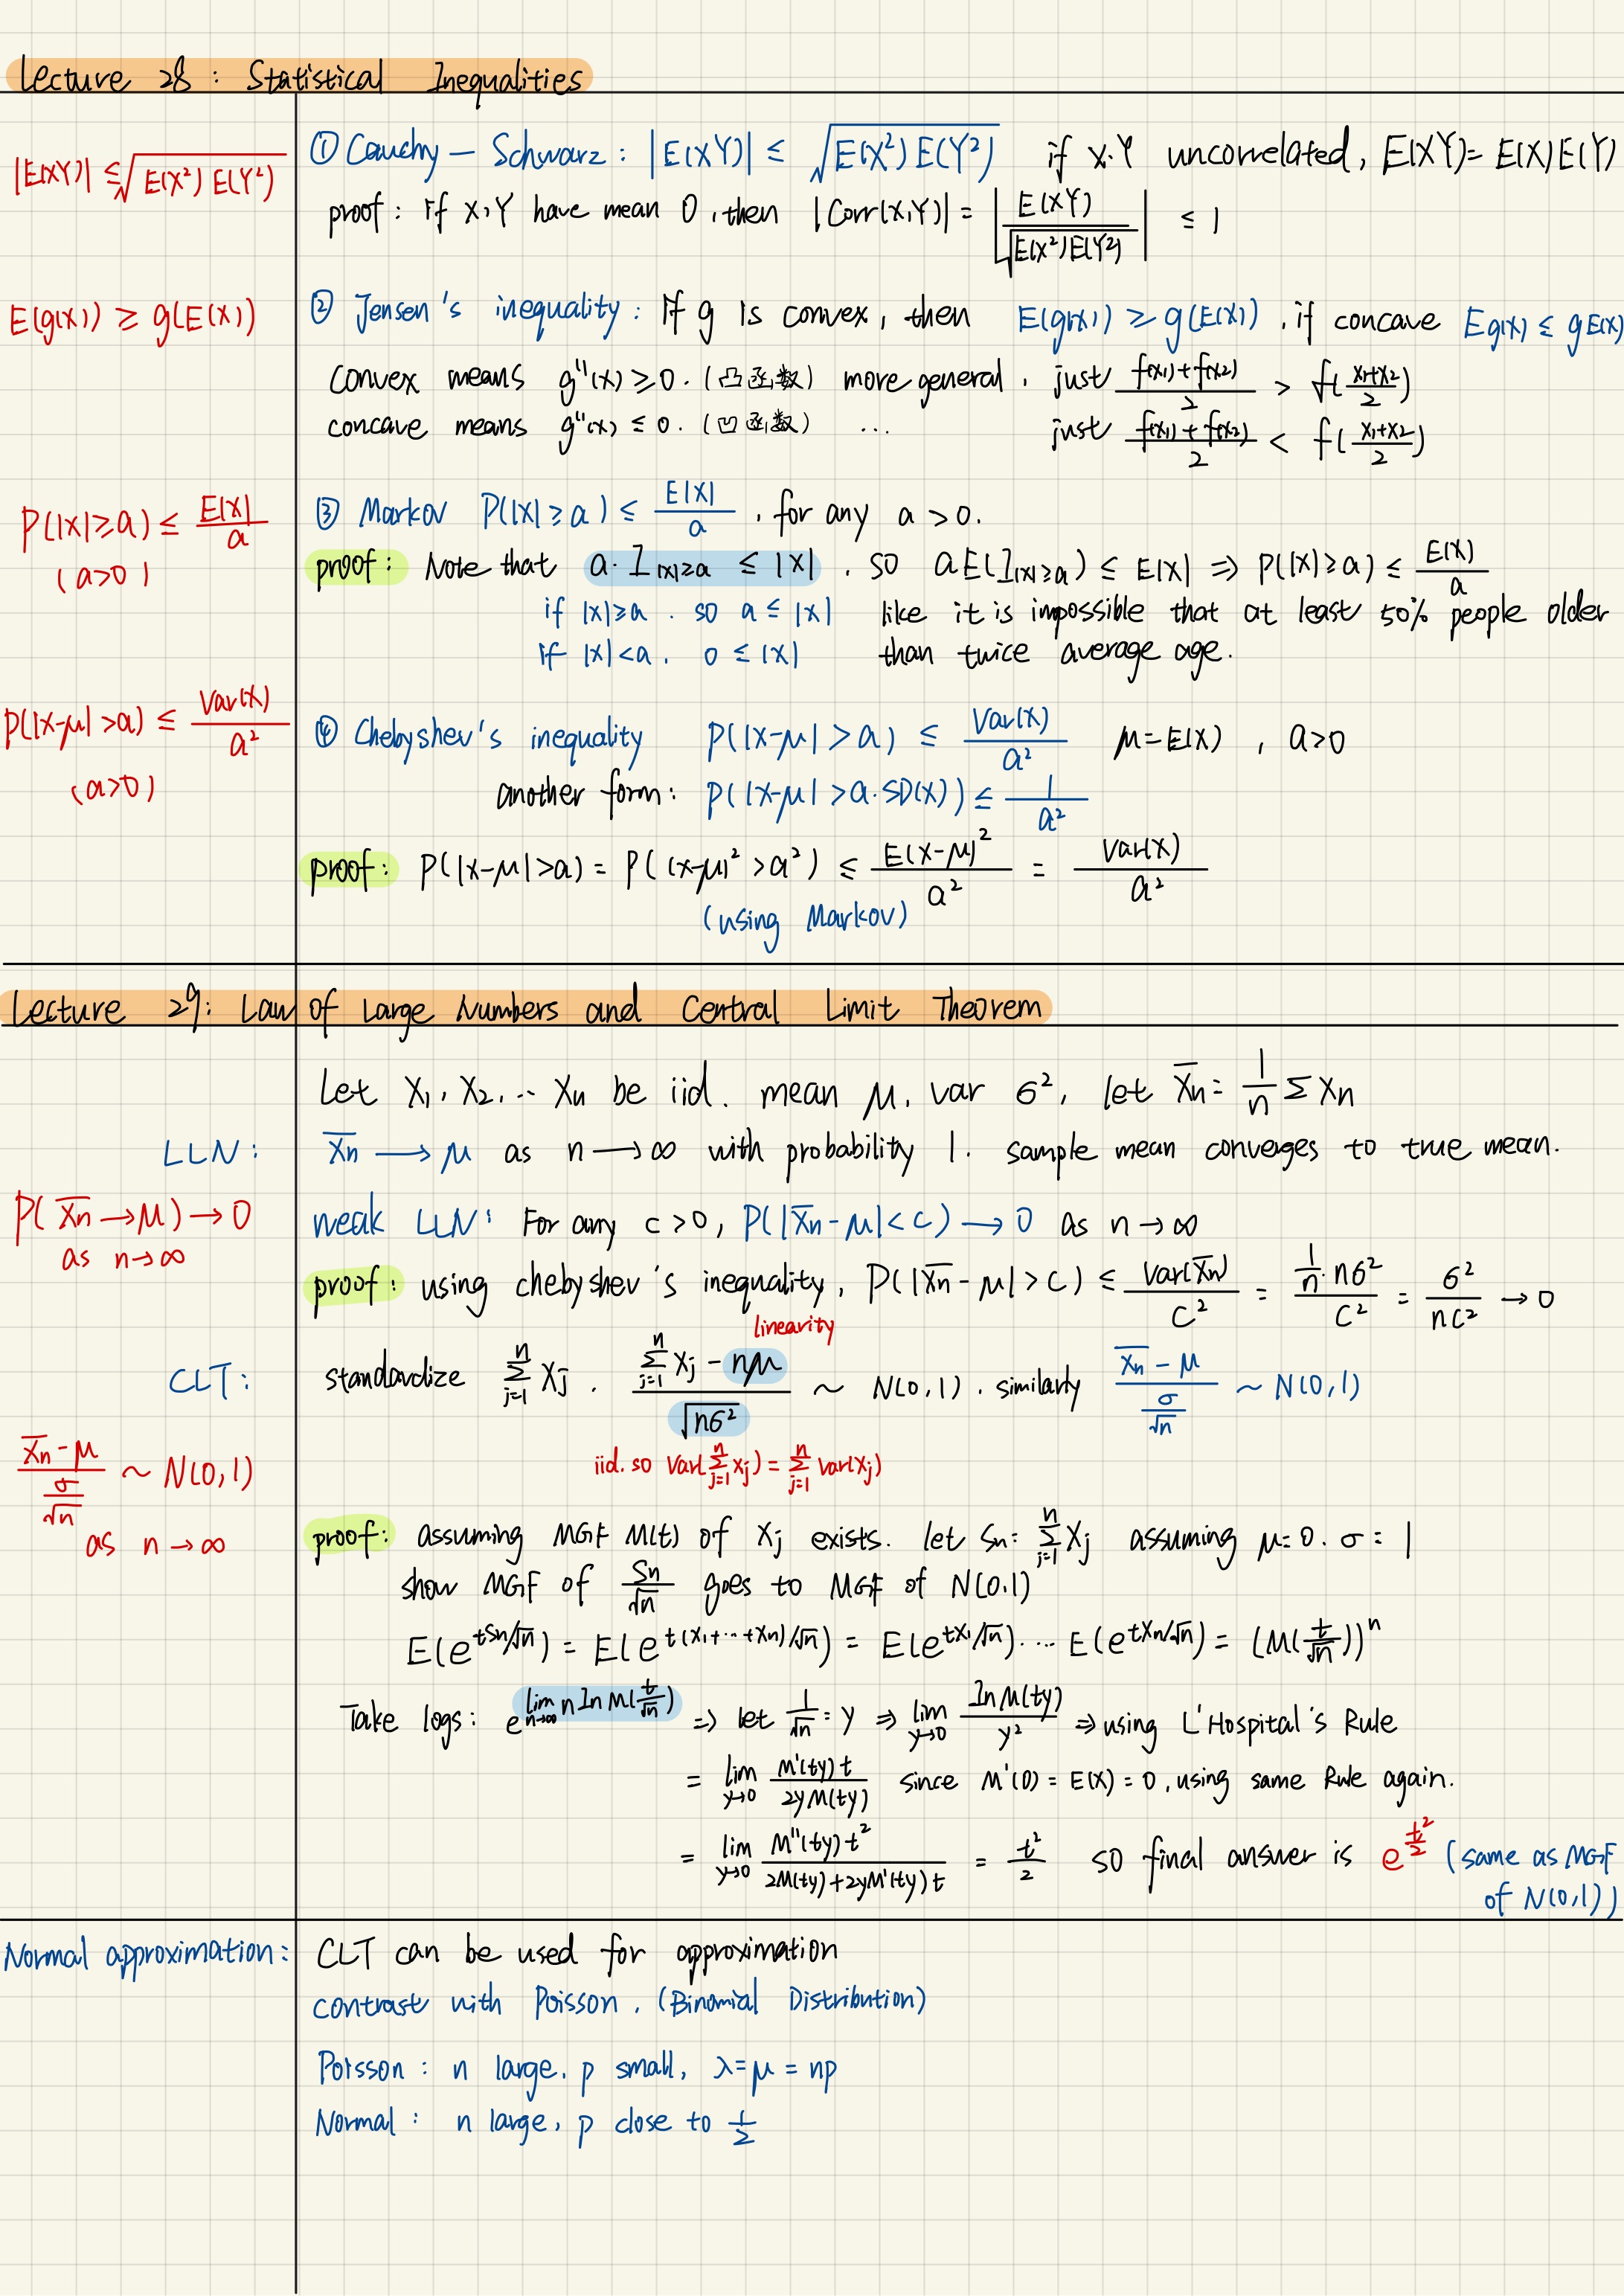 Lecture 28 : Statistical Inequalities
|E(XY)| ≤ √(E(X²) E(Y²))
① Cauchy — Schwarz : |E(XY)| ≤ √(E(X²) E(Y²)) if X.Y uncorrelated, E(XY) = E(X)E(Y)
proof : if X,Y have mean 0, then |Corr(X,Y)| = |E(XY) / √(E(X²)E(Y²))| ≤ 1
E(g(X)) ≥ g(E(X))
② Jensen's inequality : If g is convex, then E(g(X)) ≥ g(E(X)) . if concave Eg(X) ≤ gE(X)
convex means g''(x) ≥ 0. (凸函数) more general . just (f(x₁)+f(x₂))/2 > f((x₁+x₂)/2)
concave means g''(x) ≤ 0. (凹函数) ... just (f(x₁)+f(x₂))/2 < f((x₁+x₂)/2)
P(|X|≥a) ≤ E|X|/a
(a>0)
③ Markov P(|X|≥a) ≤ E|X|/a , for any a > 0.
proof: Note that a·I_{|X|≥a} ≤ |X| . so aE(I_{|X|≥a}) ≤ E|X| ⇒ P(|X|≥a) ≤ E(X)/a
if |X|≥a . so a ≤ |X| like it is impossible that at least 50% people older
if |X|<a. 0 ≤ |X| than twice average age.
P(|X-μ| >a) ≤ Var(X)/a²
(a>0)
④ Chebyshev's inequality P(|X-μ| > a) ≤ Var(X)/a² μ=E(X) , a>0
another form: P(|X-μ| > a·SD(X)) ≤ 1/a²
proof: P(|X-μ| >a) = P((X-μ)² > a²) ≤ E(X-μ)²/a² = Var(X)/a²
(using Markov)
Lecture 29: Law of Large Numbers and Central Limit Theorem
Let X₁, X₂, ... Xn be iid. mean μ, var σ², let X̄n = 1/n Σ Xn
LLN : X̄n → μ as n → ∞ with probability 1. sample mean converges to true mean.
P(X̄n → μ) → 0
as n → ∞
weak LLN: For any c > 0, P(|X̄n - μ| < c) → 0 as n → ∞
proof: using chebyshev's inequality, P(|X̄n - μ| > c) ≤ Var(X̄n)/c² = (1/n · nσ²)/c² = σ²/(nc²) → 0
linearity
CLT: standardize Σ_{j=1}^{n} Xj . (Σ_{j=1}^{n} Xj - nμ)/√(nσ²) ~ N(0,1) . similarly (X̄n - μ)/(σ/√n) ~ N(0,1)
iid. so Var(Σ_{j=1}^{n} Xj) = Σ_{j=1}^{n} Var(Xj)
(X̄n - μ)/(σ/√n) ~ N(0,1)
as n → ∞
proof: assuming MGF M(t) of Xj exists. let Sn = Σ_{j=1}^{n} Xj assuming μ=0. σ = 1
show MGF of Sn/√n goes to MGF of N(0,1)
E(e^{tSn/√n}) = E(e^{t(X₁+...+Xn)/√n}) = E(e^{tX₁/√n}) ... E(e^{tXn/√n}) = (M(t/√n))ⁿ
Take logs: e^{lim_{n→∞} n ln M(t/√n)} ⇒ let 1/√n = y ⇒ lim_{y→0} ln M(ty)/y² ⇒ using L'Hospital's Rule
= lim_{y→0} M'(ty)t/(2yM(ty)) since M'(0) = E(X) = 0, using same Rule again.
= lim_{y→0} M''(ty)t²/(2M(ty)+2yM'(ty)t) = t²/2 so final answer is e^{t²/2} (same as MGF
of N(0,1))
Normal approximation: CLT can be used for approximation
contrast with Poisson. (Binomial Distribution)
Poisson : n large. p small, λ=μ = np
Normal : n large, p close to 1/2